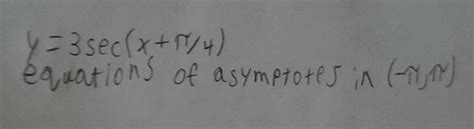 y=3sec(x+π/4)
equations of asymptotes in (-π,π)